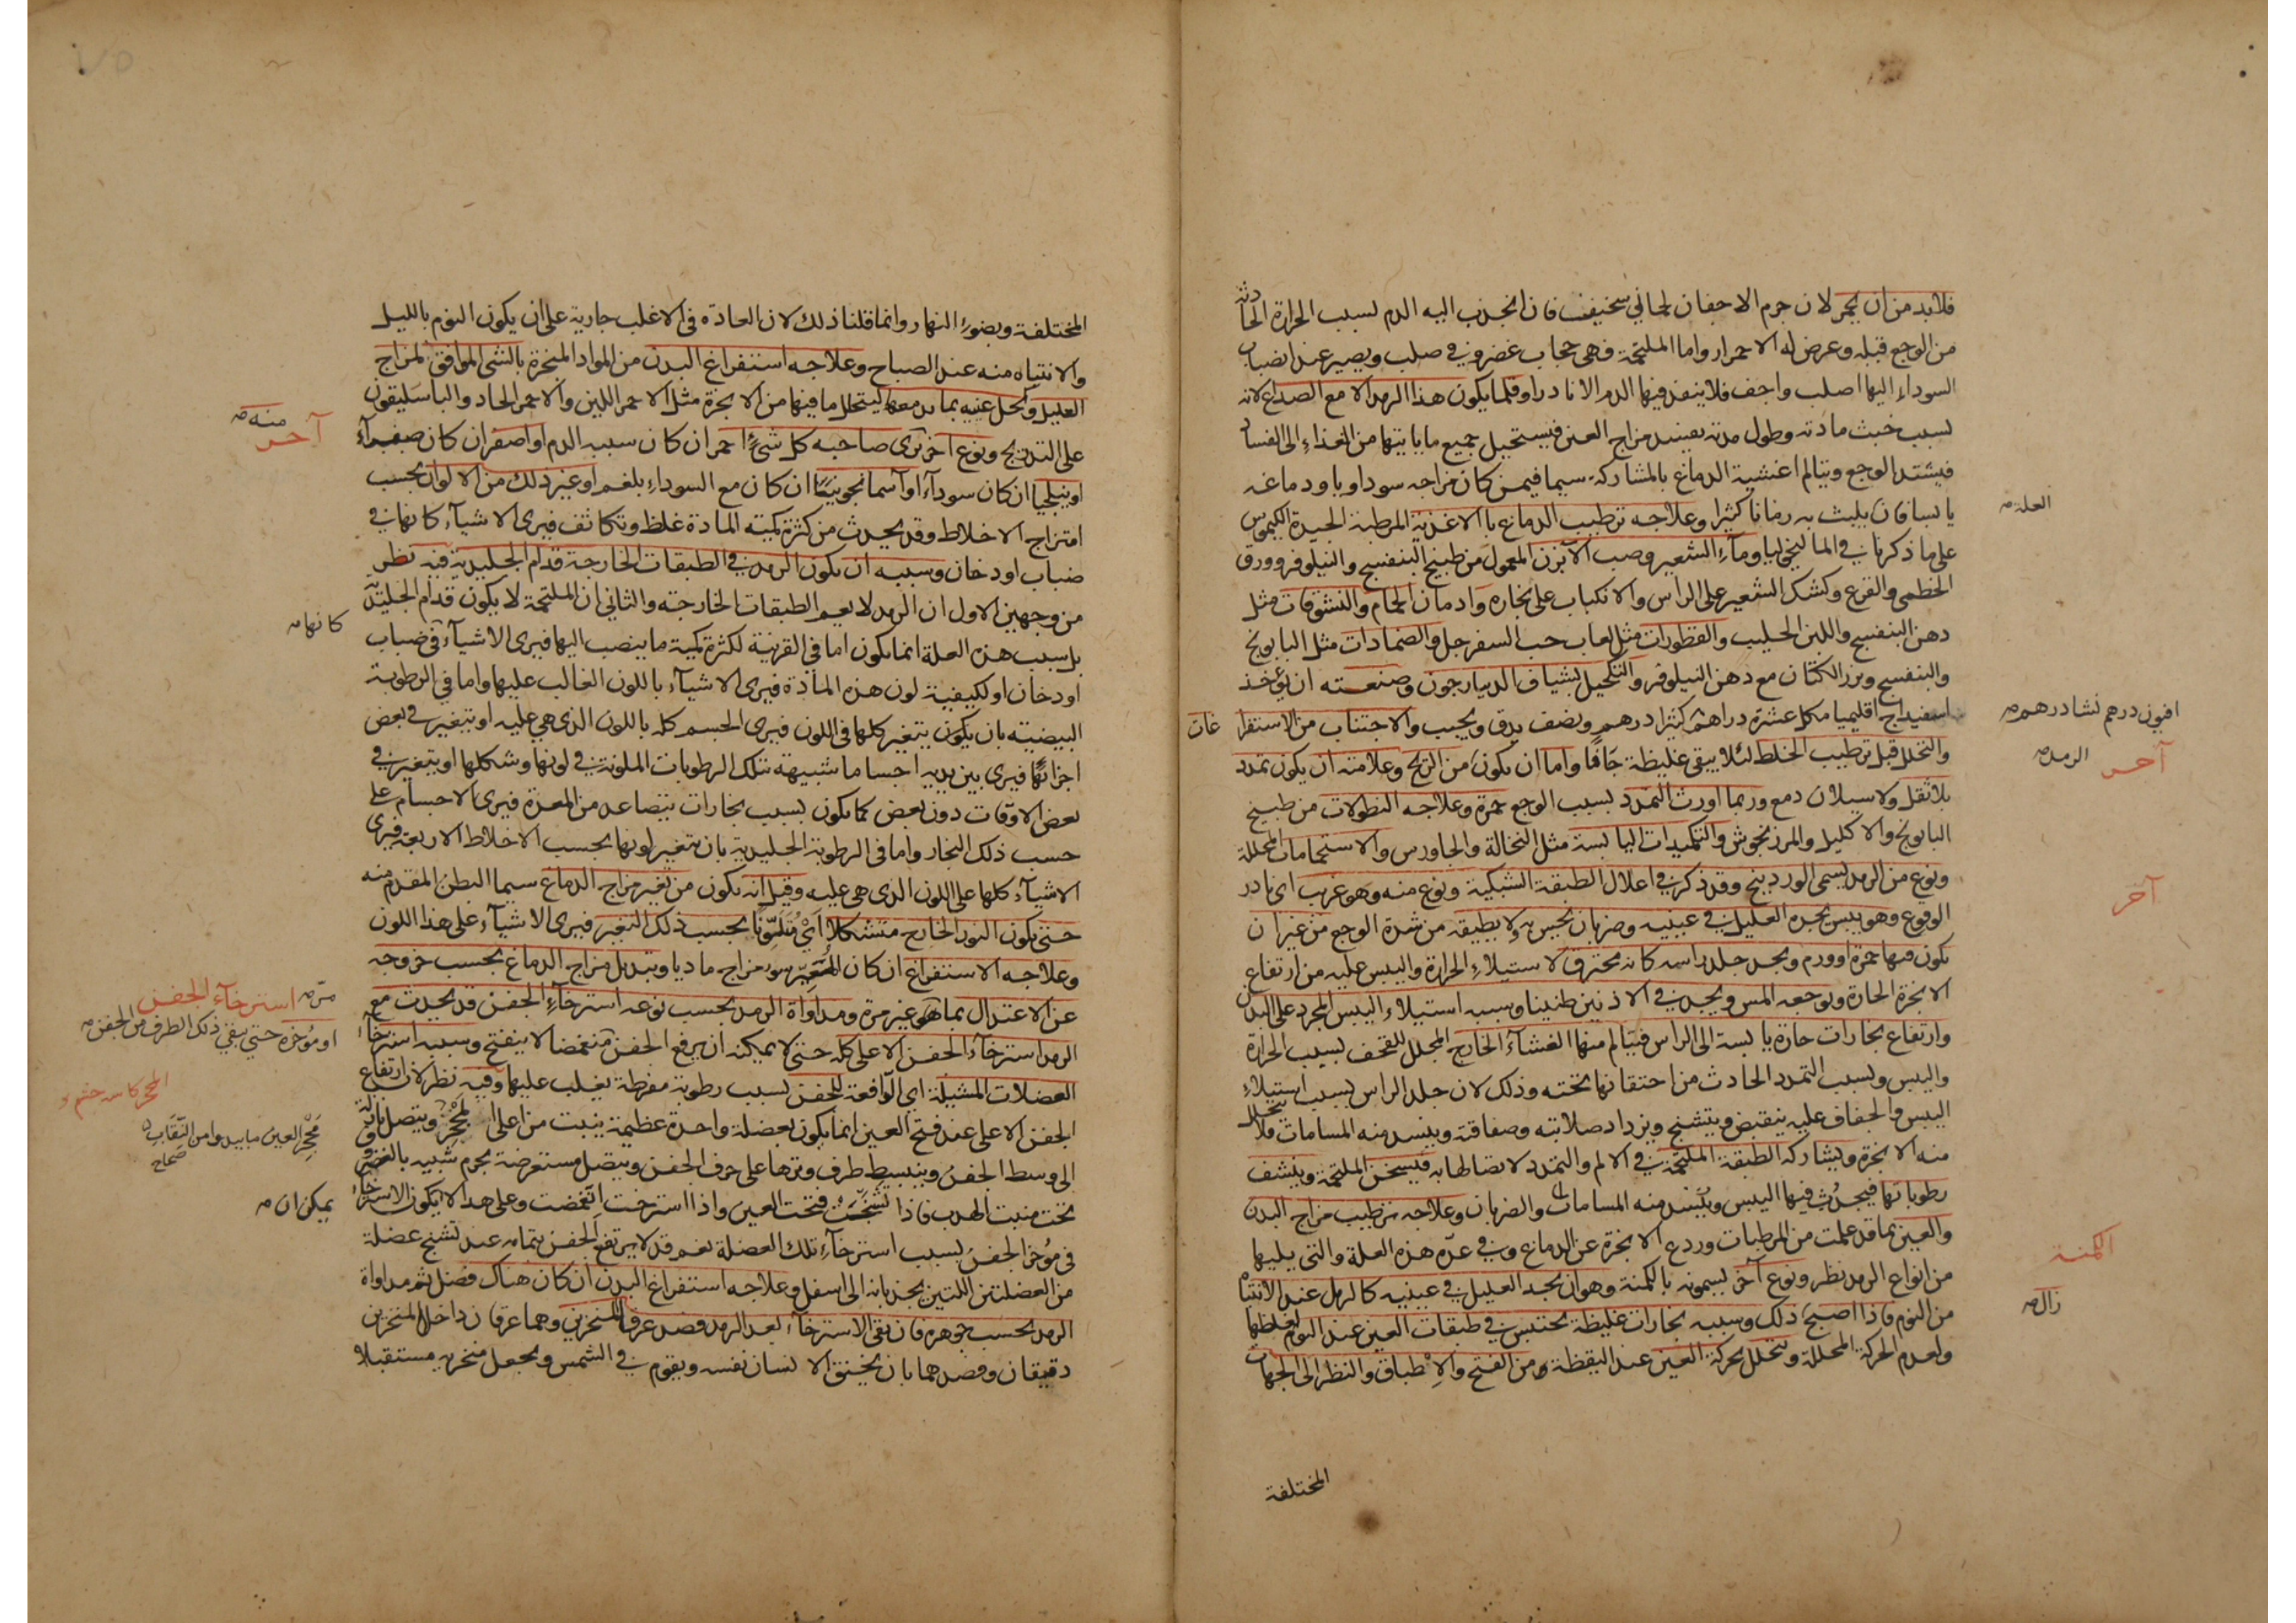 فلابد من ان يحمر لان جرم الاجفان لحماني سخيف فان انجذب اليه الدم لسبب الحرارة الحادثة
من الوجع قبله وعرض له الاحمرار واما الملتحمة فهى حجاب غضروفي صلب ويصير عند انصباب
السوداء اليها اصلب واجف فلا ينفد فيها الدم الا نادرا وقلما يكون هذا الرمد الا مع الصداع لانه
لسبب خبث مادته وطول مدته يفسد مزاج العين فيستحيل جميع ما ياتيها من الغذاء الى الفساد
فيشتد الوجع ويتالم اغشية الدماغ بالمشاركة سيما فيمن كان مزاجه سوداويا ودماغه
يابسا فان يلبث به زمانا كثيرا وعلاجه ترطيب الدماغ بالاغذية المرطبة الجيدة الكيموس
العلة
على ما ذكرنا في المالنخوليا وماء الشعير وصب الآبزن المعمول من طبيخ البنفسج والنيلوفر وورق
الخطمى والقرع وكشك الشعير على الراس والانكباب على بخاره وادمان الحمام والنشوقات مثل
دهن البنفسج واللبن الحليب والقطورات مثل لعاب حب السفرجل والضمادات مثل البابونج
والبنفسج وبزر الكتان مع دهن النيلوفر والتكحيل بشياف الدينارجون وصنعته ان يؤخذ
اسفيداج اقليميا من كل عشرة دراهم كثيرا درهم ونصف يدق ويجب والاجتناب من الاستفرا
غات
افيون درهم نشا درهم
والتحلل قبل ترطيب الخلط لئلا يبقى غليظة جافا واما ان يكون من الريح وعلامته ان يكون تمدد
آخر
الرمد
بلا ثقل ولا سيلان دمع وربما اورث التمدد لسبب الوجع حمرة وعلاجه النطولات من طبيخ
البابونج والاكليل والمرزنجوش والتكميدات اليابسة مثل النخالة والجاورس والاستحمامات المحللة
ونوع من الرمد يسمى الوردينج وقد ذكر في اعلال الطبقة الشبكية ونوع منه وهو غريب اى نادر
آخر
الوقوع وهو يبس يجده العليل في عينيه وضربان يحس به ولا يطيقه من شدة الوجع من غير ان
يكون فيها حمرة او ورم ويجد جلد راسه كانه محترق لاستيلاء الحرارة واليبس عليه من ارتفاع
الابخرة الحارة ويوجعه المس ويجد في الاذنين طنينا وسببه استيلاء اليبس المجرد على البدن
وارتفاع بخارات حارة يابسة الى الراس فيتالم منها الغشاء الخارج المجلل للقحف لسبب الحرارة
واليبس ولسبب التمدد الحادث من احتقانها تحته وذلك لان جلد الراس لسبب استيلاء
اليبس والجفاف عليه ينقبض ويتشنج ويزداد صلابته وصفاقته وينسد منه المسامات فلا يتحلل
منه الابخرة ويشاركه الطبقة الملتحمة في الالم والتمدد لاتصالها به فيسخن الملتحمة وينشف
رطوباتها فيحدث فيها اليبس وينسد منه المسامات والضربان وعلاجه ترطيب مزاج البدن
والعين بما قد علمت من المرطبات وردع الابخرة عن الدماغ وفي عده هذه العلة والتى يليها
الكمنة
من انواع الرمد نظر ونوع آخر يسمونه بالكمنة وهو ان يجد العليل في عينيه كالرمل عند الانتباه
من النوم فاذا اصبح ذلك وسببه بخارات غليظة يحتبس في طبقات العين عند النوم لغلظها
زال
ولعدم الحركة المحللة ويتحلل بحركة العين عند اليقظة ومن الفتح والاطباق والنظر الى الجهات
المختلفة
المختلفة وبضوء النهار وانما قلنا ذلك لان العادة في الاغلب جارية على ان يكون النوم بالليل
والانتباه منه عند الصباح وعلاجه استفراغ البدن من المواد المبخرة بالشى الموافق لمزاج
العليل وكحل عينيه بما يدمعها ليتحلل ما فيها من الابخرة مثل الاحمر اللين والاحمر الحاد والباسليقون
منه
آخر
على التدريج ونوع آخر ترى صاحبه كل شئ احمر ان كان سببه الدم او اصفر ان كان صفراء
او نيلجيا ان كان سوداء او آسمانجونيا ان كان مع السوداء بلغم او غير ذلك من الالوان بحسب
امتزاج الاخلاط وقد يحدث من كثرة كمية المادة غلظ وتكاثف فيرى الاشياء كانها في
ضباب او دخان وسببه ان يكون الرمد في الطبقات الخارجة قدام الجليدية فيه نظر
من وجهين الاول ان الرمد لا يعم الطبقات الخارجة والثاني ان الملتحمة لا يكون قدام الجليدية
كانها
بل سبب هذه العلة انما يكون اما في القرنية لكثرة كمية ما ينصب اليها فيرى الاشياء في ضباب
او دخان او لكيفية لون هذه المادة فيرى الاشياء باللون الغالب عليها واما في الرطوبة
البيضية بان يكون يتغير كلها في اللون فيرى الجسم كله باللون الذى هي عليه او يتغير في بعض
اجزائها فيرى بين يديه اجساما شبيهة بتلك الرطوبات الملونة في لونها وشكلها او يتغير في
بعض الاوقات دون بعض كما يكون لسبب بخارات يتصاعد من المعدة فيرى الاجسام على
حسب ذلك البخار واما في الرطوبة الجليدية بان يتغير لونها بحسب الاخلاط الاربعة فيرى
الاشياء كلها على اللون الذى هى عليه وقيل انه يكون من تغير مزاج الدماغ سيما البطن المقدم منه
حتى يكون النور الخارج متشكلا اى متلونا بحسب ذلك التغير فيرى الاشياء على هذا اللون
وعلاجه الاستفراغ ان كان المتغير سوء مزاج ماديا وتبديل مزاج الدماغ بحسب خروجه
عن الاعتدال بما هو غير مرة ومداواة الرمد بحسب نوعه استرخاء الجفن قد يحدث مع
مر
استرخاء الجفن
الرمد استرخاء الجفن الاعلى كله حتى لا يمكنه ان يرفع الجفن منغمضا لا ينفتح وسببه استرخاء
او مؤخره حتى يبقى ذلك الطرف من الجفن
العضلات المشيلة اى الرافعة للجفن لسبب رطوبة مفرطة يغلب عليها وفيه نظر لان ارتفاع
الجفن الاعلى عند فتح العين انما يكون بعضلة واحدة عظيمة ينبت من اعلى المحجر ويتصل بانزلة
المحجر كالمجلس
محجر العين ما يبدو من النقاب
صحاح
الى وسط الجفن وينبسط طرف وترها على حرف الجفن ويتصل مستعرضة بجرم شبيه بالغضروف
تحت منبت الهدب فاذا تشنجت فتحت العين واذا استرخت انغمضت وعلى هذا لا يكون الاسترخاء
يمكن ان
فى مؤخر الجفن لسبب استرخاء تلك العضلة نعم قد لا يرتفع الجفن بتمامه عند تشنج عضلة
من العضلتين اللتين يجذبانه الى اسفل وعلاجه استفراغ البدن ان كان هناك فضل ثم مداواة
الرمد بحسب جوهره فان بقى الاسترخاء بعد الرمد فصد عرقا المنخرين وهما عرقان داخل المنخرين
دقيقان وفصدهما بان يخنق الانسان نفسه ويقوم في الشمس ويجعل منخريه مستقبلا